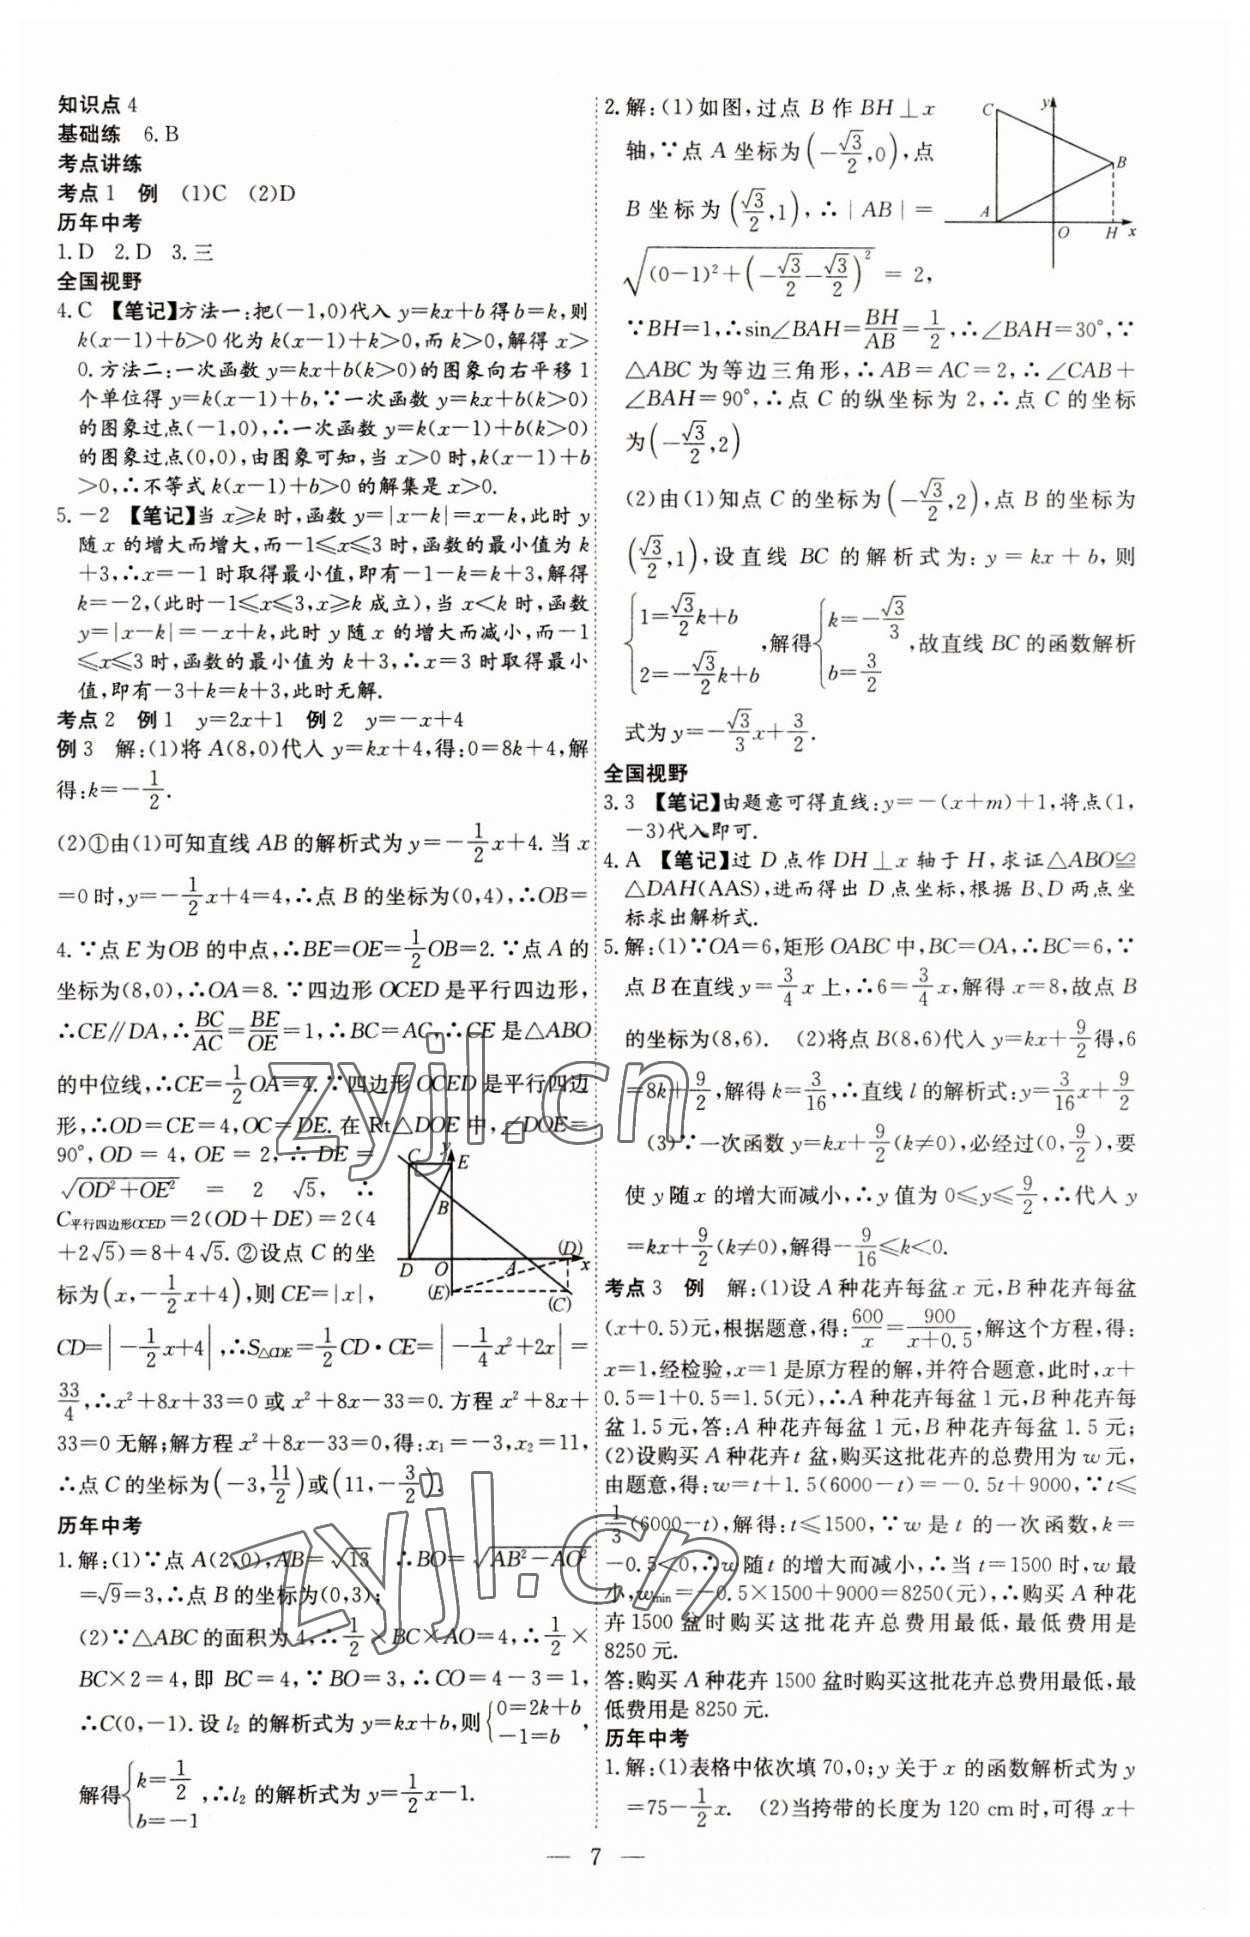 知识点 4
基础练　6. B
考点讲练
考点 1　例　(1)C　(2)D
历年中考
1. D　2. D　3. 三
全国视野
4. C　【笔记】方法一:把(−1,0)代入 y=kx+b 得 b=k,则
k(x−1)+b>0 化为 k(x−1)+k>0,而 k>0,解得 x>
0. 方法二:一次函数 y=kx+b(k>0)的图象向右平移 1
个单位得 y=k(x−1)+b,∵一次函数 y=kx+b(k>0)
的图象过点(−1,0),∴一次函数 y=k(x−1)+b(k>0)
的图象过点(0,0),由图象可知,当 x>0 时,k(x−1)+b
>0,∴不等式 k(x−1)+b>0 的解集是 x>0.
5. −2　【笔记】当 x≥k 时,函数 y=|x−k|=x−k,此时 y
随 x 的增大而增大,而−1≤x≤3 时,函数的最小值为 k
+3,∴x=−1 时取得最小值,即有−1−k=k+3,解得
k=−2,(此时−1≤x≤3,x≥k 成立),当 x<k 时,函数
y=|x−k|=−x+k,此时 y 随 x 的增大而减小,而−1
≤x≤3 时,函数的最小值为 k+3,∴x=3 时取得最小
值,即有−3+k=k+3,此时无解.
考点 2　例 1　y=2x+1　例 2　y=−x+4
例 3　解:(1)将 A(8,0)代入 y=kx+4,得:0=8k+4,解
得:k=−1/2.
(2)①由(1)可知直线 AB 的解析式为 y=−1/2x+4. 当 x
=0 时,y=−1/2x+4=4,∴点 B 的坐标为(0,4),∴OB=
4. ∵点 E 为 OB 的中点,∴BE=OE=1/2OB=2. ∵点 A 的
坐标为(8,0),∴OA=8. ∵四边形 OCED 是平行四边形,
∴CE∥DA,∴BC/AC=BE/OE=1,∴BC=AC,∴CE 是△ABO
的中位线,∴CE=1/2OA=4. ∵四边形 OCED 是平行四边
形,∴OD=CE=4,OC=DE. 在 Rt△DOE 中,∠DOE=
90°,OD = 4,OE = 2,∴ DE =
√(OD²+OE²) = 2√5,∴
C平行四边形OCED=2(OD+DE)=2(4
+2√5)=8+4√5. ②设点 C 的坐
标为(x,−1/2x+4),则 CE=|x|,
CD=|−1/2x+4|,∴S△CDE=1/2CD·CE=|−1/4x²+2x|=
33/4,∴x²+8x+33=0 或 x²+8x−33=0. 方程 x²+8x+
33=0 无解;解方程 x²+8x−33=0,得:x₁=−3,x₂=11,
∴点 C 的坐标为(−3,11/2)或(11,−3/2).
C E B D O A (D) x y (E) (C)
历年中考
1. 解:(1)∵点 A(2,0),AB=√13　∴BO=√(AB²−AO²)
=√9=3,∴点 B 的坐标为(0,3);
(2)∵△ABC 的面积为 4,∴1/2×BC×AO=4,∴1/2×
BC×2=4,即 BC=4,∵BO=3,∴CO=4−3=1,
∴C(0,−1). 设 l₂ 的解析式为 y=kx+b,则{0=2k+b −1=b,
解得{k=1/2 b=−1,∴l₂ 的解析式为 y=1/2x−1.
2. 解:(1)如图,过点 B 作 BH⊥x
轴,∵点 A 坐标为(−√3/2,0),点
B 坐标为(√3/2,1),∴|AB|=
√((0−1)²+(−√3/2−√3/2)²) = 2,
C y B A O H x
∵BH=1,∴sin∠BAH=BH/AB=1/2,∴∠BAH=30°,∵
△ABC 为等边三角形,∴AB=AC=2,∴∠CAB+
∠BAH=90°,∴点 C 的纵坐标为 2,∴点 C 的坐标
为(−√3/2,2)
(2)由(1)知点 C 的坐标为(−√3/2,2),点 B 的坐标为
(√3/2,1),设直线 BC 的解析式为:y=kx+b,则
{1=√3/2k+b 2=−√3/2k+b,解得{k=−√3/3 b=3/2,故直线 BC 的函数解析
式为 y=−√3/3x+3/2.
全国视野
3. 3　【笔记】由题意可得直线:y=−(x+m)+1,将点(1,
−3)代入即可.
4. A　【笔记】过 D 点作 DH⊥x 轴于 H,求证△ABO≌
△DAH(AAS),进而得出 D 点坐标,根据 B、D 两点坐
标求出解析式.
5. 解:(1)∵OA=6,矩形 OABC 中,BC=OA,∴BC=6,∵
点 B 在直线 y=3/4x 上,∴6=3/4x,解得 x=8,故点 B
的坐标为(8,6).　(2)将点 B(8,6)代入 y=kx+9/2得,6
=8k+9/2,解得 k=3/16,∴直线 l 的解析式:y=3/16x+9/2
(3)∵一次函数 y=kx+9/2(k≠0),必经过(0,9/2),要
使 y 随 x 的增大而减小,∴y 值为 0≤y≤9/2,∴代入 y
=kx+9/2(k≠0),解得−9/16≤k<0.
考点 3　例　解:(1)设 A 种花卉每盆 x 元,B 种花卉每盆
(x+0.5)元,根据题意,得:600/x=900/(x+0.5),解这个方程,得:
x=1,经检验,x=1 是原方程的解,并符合题意,此时,x+
0.5=1+0.5=1.5(元),∴A 种花卉每盆 1 元,B 种花卉每
盆 1.5 元,答:A 种花卉每盆 1 元,B 种花卉每盆 1.5 元;
(2)设购买 A 种花卉 t 盆,购买这批花卉的总费用为 w 元,
由题意,得:w=t+1.5(6000−t)=−0.5t+9000,∵t≤
1/3(6000−t),解得:t≤1500,∵w 是 t 的一次函数,k=
−0.5<0,∴w 随 t 的增大而减小,∴当 t=1500 时,w 最
小,wmin=−0.5×1500+9000=8250(元),∴购买 A 种花
卉 1500 盆时购买这批花卉总费用最低,最低费用是
8250 元.
答:购买 A 种花卉 1500 盆时购买这批花卉总费用最低,最
低费用是 8250 元.
历年中考
1. 解:(1)表格中依次填 70,0;y 关于 x 的函数解析式为 y
=75−1/2x.　(2)当挎带的长度为 120 cm 时,可得 x+
— 7 —
zyjl.cn
zyjl.cn